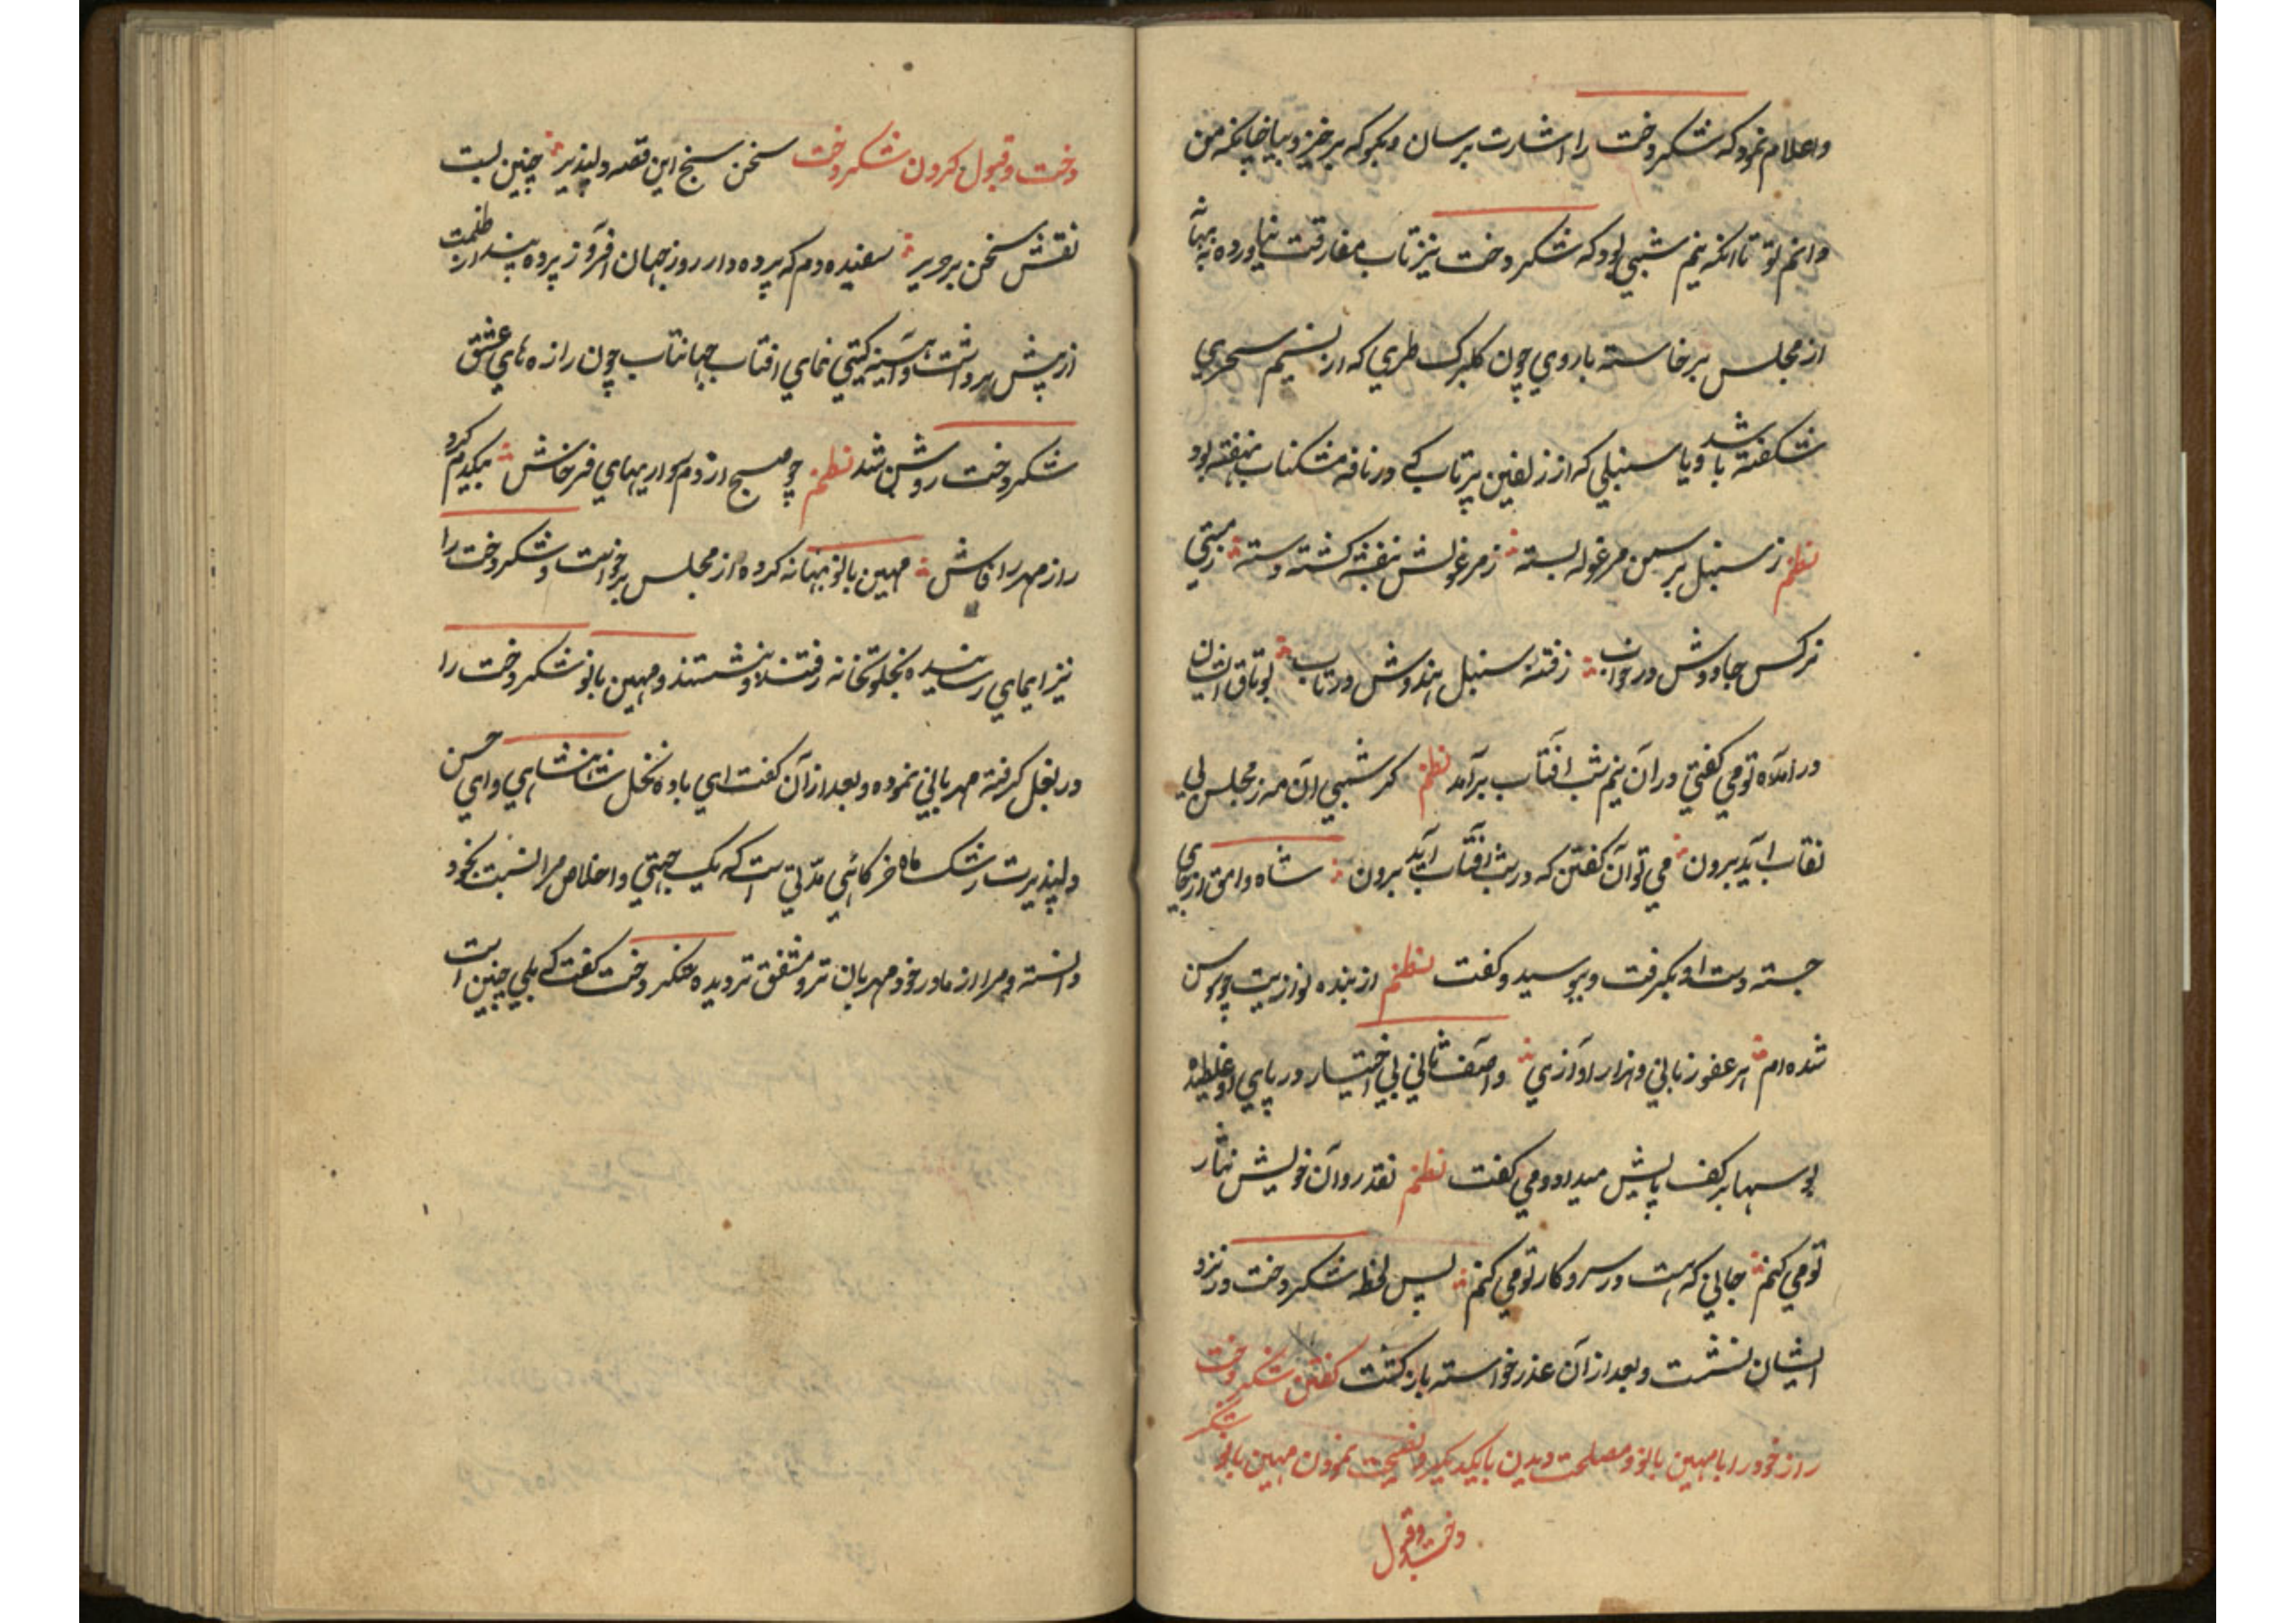 واعلام نمود که شکردخت را اشارت برسان و بگو که برخیز و بیا چنانکه من
دانم تو تا انکه نیم شبی بود که شکردخت نیز تاب مفارقت نیاورده به بهانه
از مجلس برخاسته با روی چون کلبرک طری که از نسیم سحری
شکفته باشد و یا سنبلی که از زلفین پرتاب کے در نافه مشکناب نهفته بود
نظم ز سنبل بر سمن مرغوله بسته ز مرغولش بنفشه کشته دسته ز مستی
نرکس جادوش در خواب ز فتنه سنبل هندوش در تاب بوتاق ایشان
در امده تو می کفتی در آن نیم شب افتاب برآمد نظم کر شبی آن مه ز مجلس بی
نقاب آید برون می توان کفتن که در شب آفتاب آید برون شاه وامق از جای
جسته دست او بکرفت و ببوسید و کفت نظم از بنده نوازیت چو سوسن
شده ام هر عضو زبانی و هزار اوازی واصف ثانی بی اختیار در پای او غلطیده
بوسها بر کف پایش میداد و می کفت نظم نقد روان خویش نثار
تو می کنم جانی که هست در سر و کار تو می کنم پس لحظه شکردخت در نزد
ایشان نشست و بعد از آن عذر خواسته باز کشت کفتن شکردخت
راز خود را با مهین بانو و مصلحت دیدن با یکدیکر و نصیحت نمودن مهین بانو شکر
دخت و قبول
دخت و قبول کردن شکردخت سخن سنج این قصه دلپذیر چنین بست
نقش سخن بر حریر سفیده دم که پرده دار روز جهان افروز پرده پندار ظلمت
از پیش برداشت و آیینه کیتی نمای افتاب جهانتاب چون رازه های عشق
شکردخت روشن شد نظم چو صبح از دم سواریهای فرخاش بیکدم کرد
راز مهر را فاش مهین بانو بهانه کرده از مجلس برخواست و شکردخت را
نیز ایمای رسانیده بخلوتخانه رفتند و نشستند و مهین بانو شکردخت را
در بغل کرفته مهربانی نموده و بعد از آن کفت ای باوه نخل شاهنشاهی و ای حسن
دلپذیرت رشک ماه خرکاهی مدتی است که یک جهتی و اخلاص مرا نسبت بخود
دانسته و مرا از مادر خود مهربان تر و مشفق تر دیده شکردخت کفت کے بلی چنین است